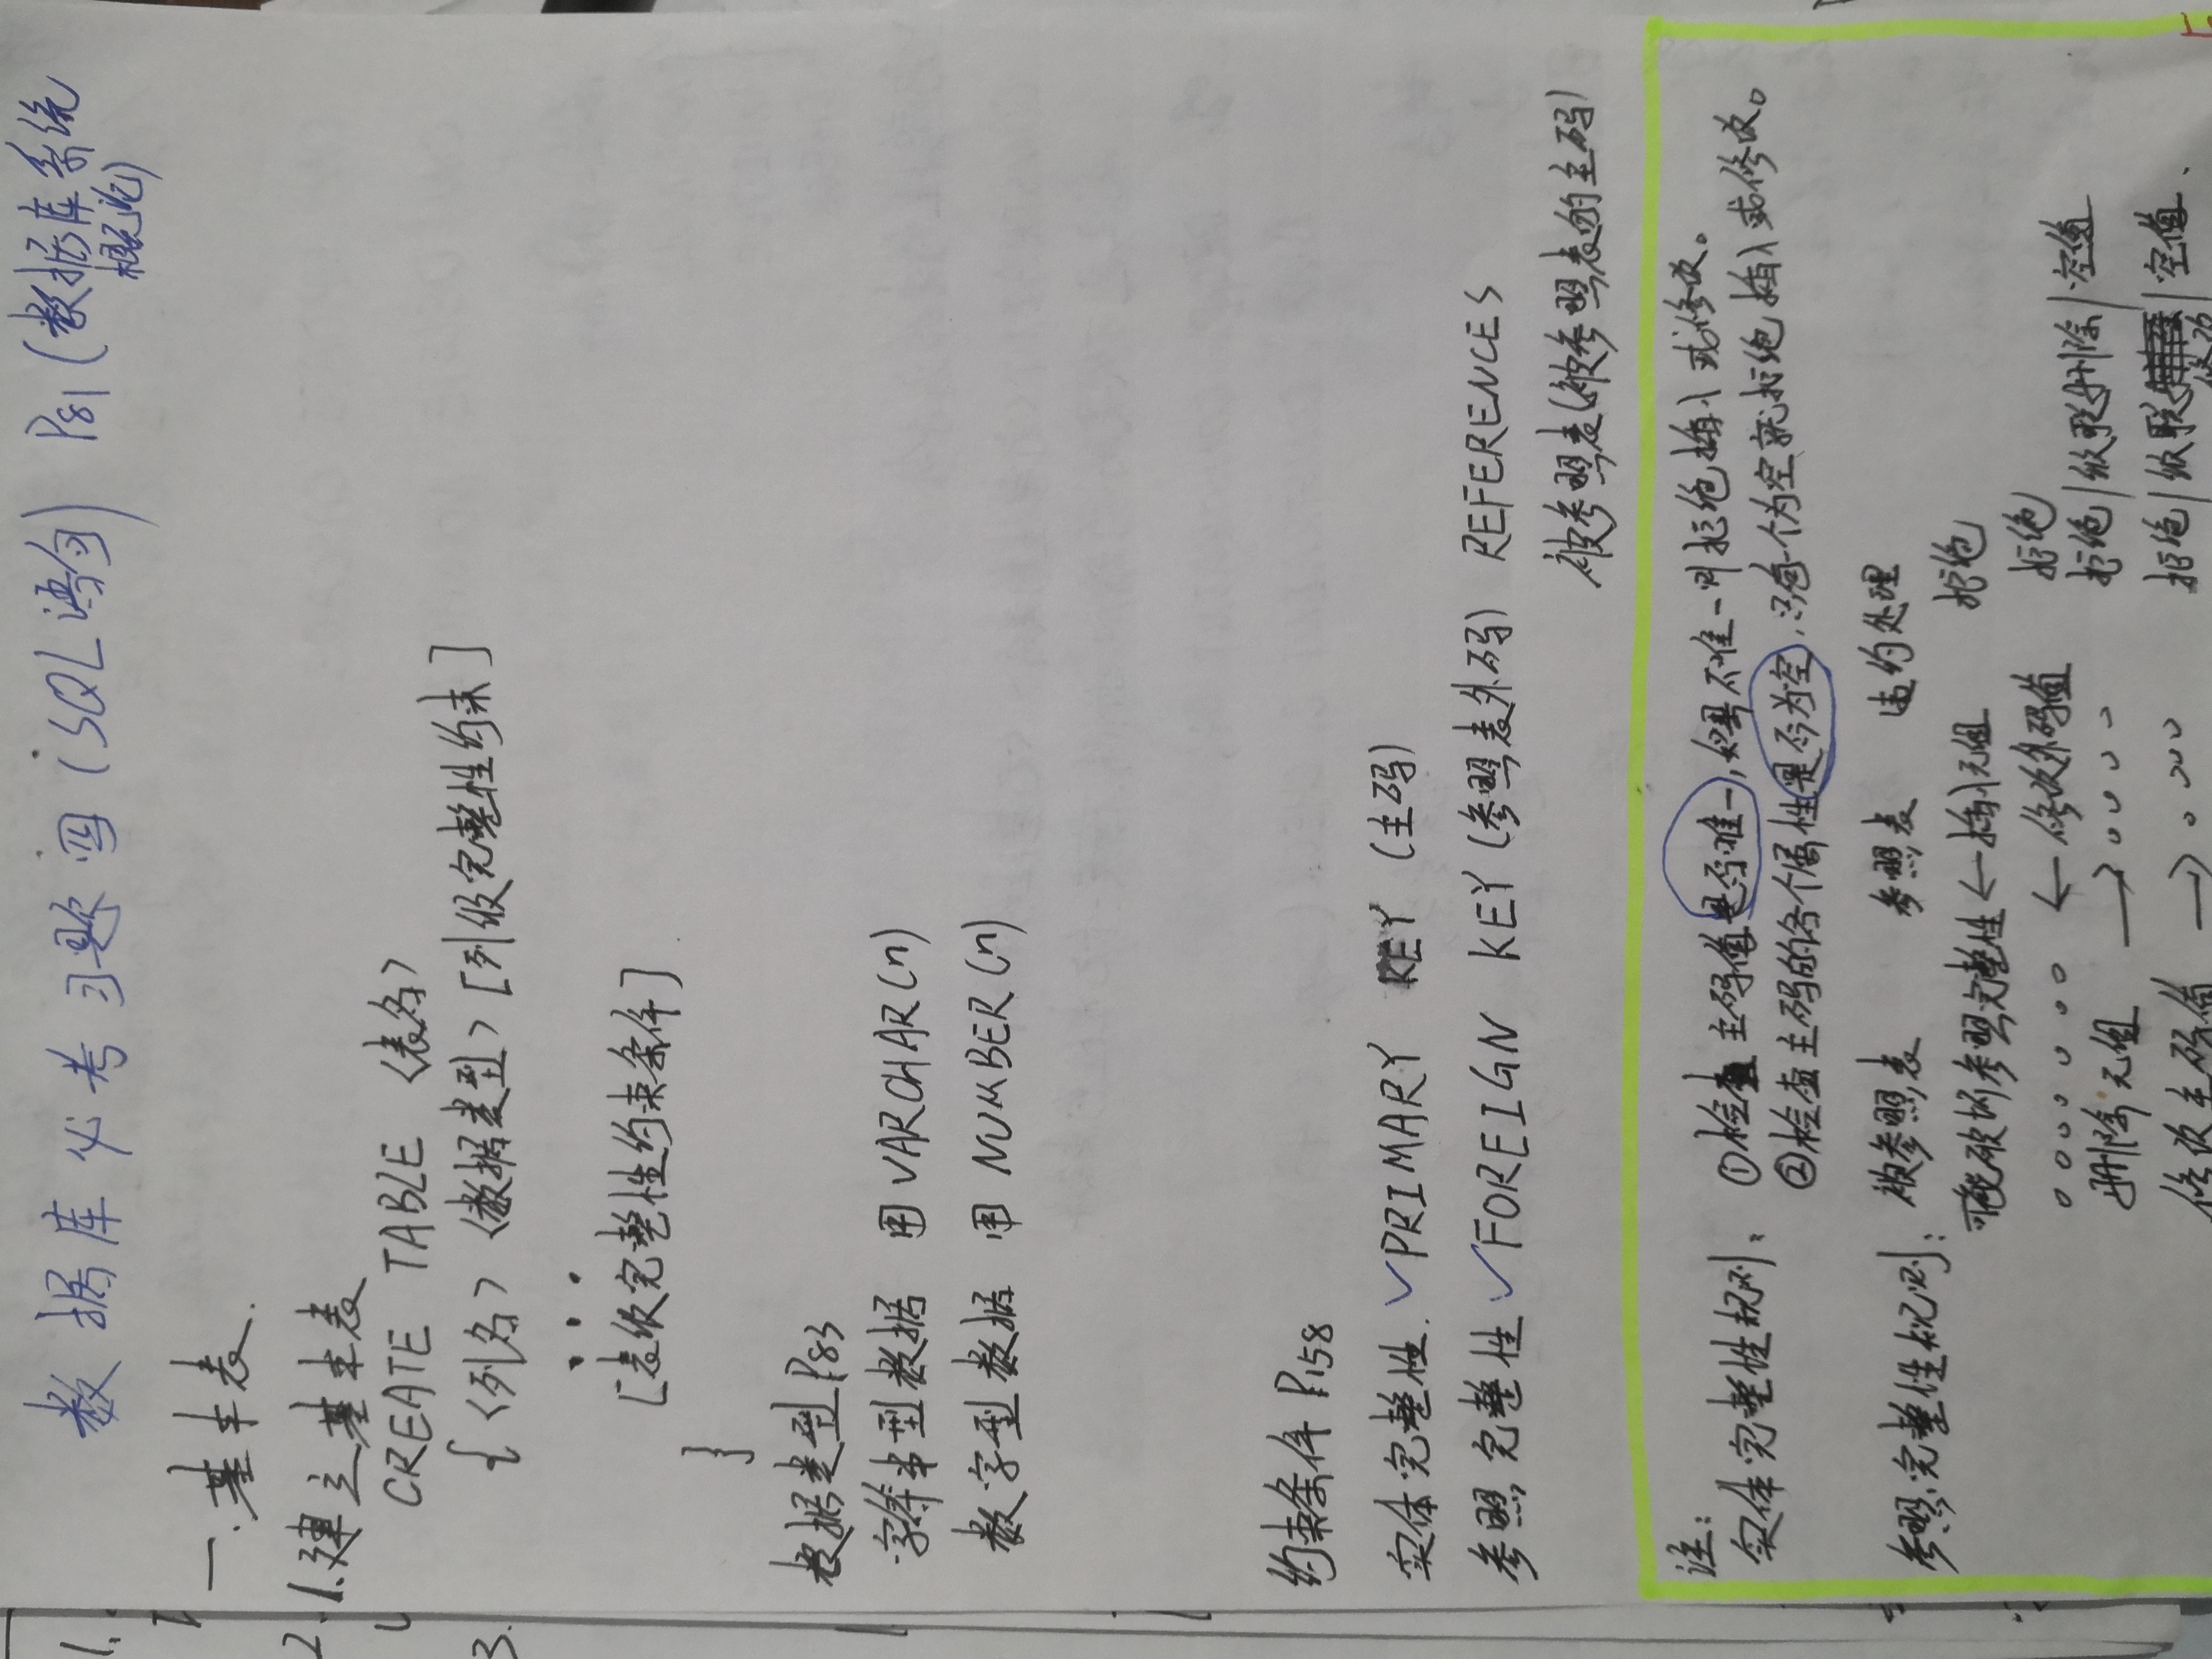 数据库必考习题四（SQL语句） P81（数据库系统
概论）
一.基本表.
1.建立基本表
CREATE TABLE <表名>
{<列名> <数据类型> [列级完整性约束]
...
[表级完整性约束条件]
}
数据类型P83
字符串型数据 用 VARCHAR(n)
数字型数据 用 NUMBER(n)
约束条件 P158
实体完整性. ✓PRIMARY KEY (主码)
参照完整性 ✓FOREIGN KEY (参照表外码) REFERENCES
被参照表(被参照表的主码)
注:
实体完整性规则: ①检查主码值是否唯一,如果不唯一则拒绝插入或修改。
②检查主码的各个属性是否为空,只有一个为空就拒绝插入或修改。
参照完整性规则: 被参照表 参照表 违约处理
可能破坏参照完整性 ← 插入元组 拒绝
。。。。。 ← 修改外码值 拒绝
删除元组 → 。。。。 拒绝/级联删除/空值
修改主码值 → 。。。。 拒绝/级联修改/空值.
1.
2.
3.